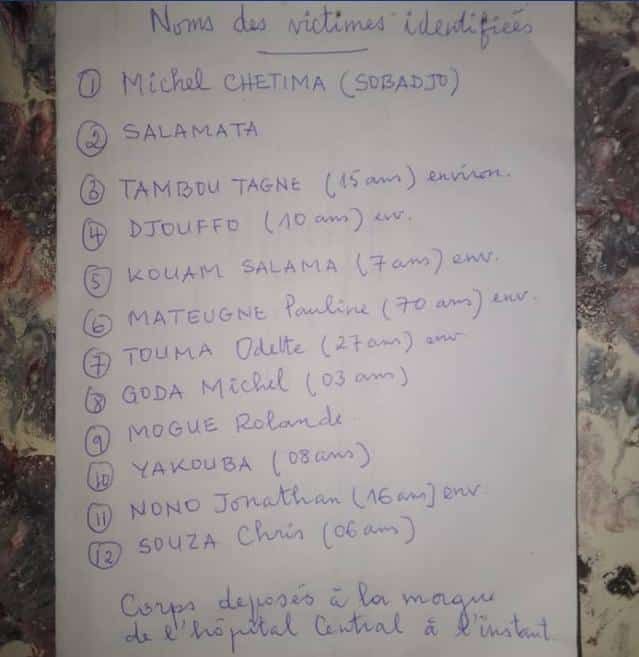 Noms des victimes identifiées
① Michel CHETIMA (SOBADJO)
② SALAMATA
③ TAMBOU TAGNE (15 ans) environ.
④ DJOUFFO (10 ans) env.
⑤ KOUAM SALAMA (7 ans) env.
⑥ MATEUGNE Pauline (70 ans) env.
⑦ TOUMA Odette (27 ans) env
⑧ GODA Michel (03 ans)
⑨ MOGUE Rolande
⑩ YAKOUBA (08 ans)
⑪ NONO Jonathan (16 ans] env
⑫ SOUZA Chris (06 ans)
Corps deposés à la morgue
de l'hôpital Central à l'instant